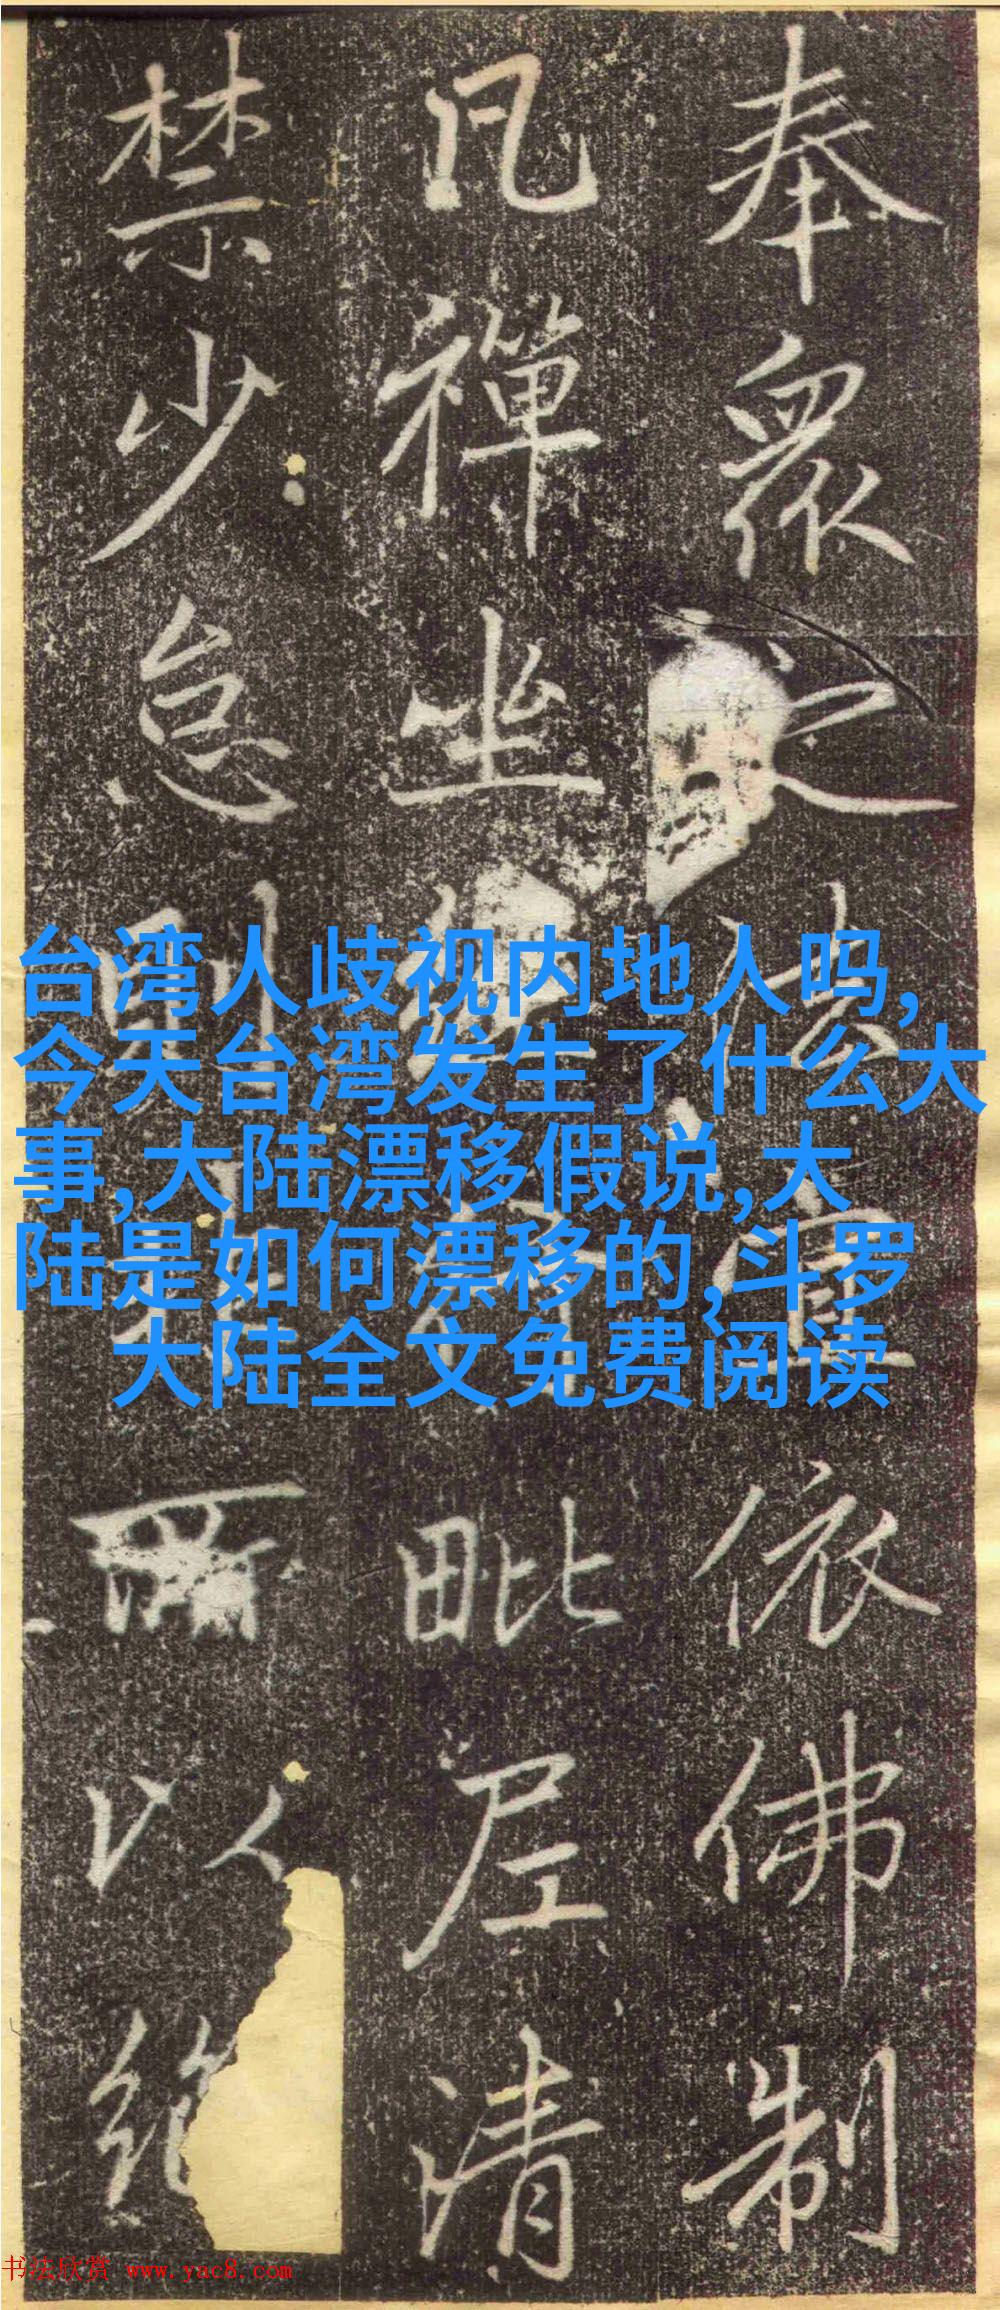 奉眾依佛制
凡禪坐毗尼清
禁少怠則以絕
台湾人歧视内地人吗,
今天台湾发生了什么大
事,大陆漂移假说,大
陆是如何漂移的,斗罗
大陆全文免费阅读
书法欣赏 www.yac8.com